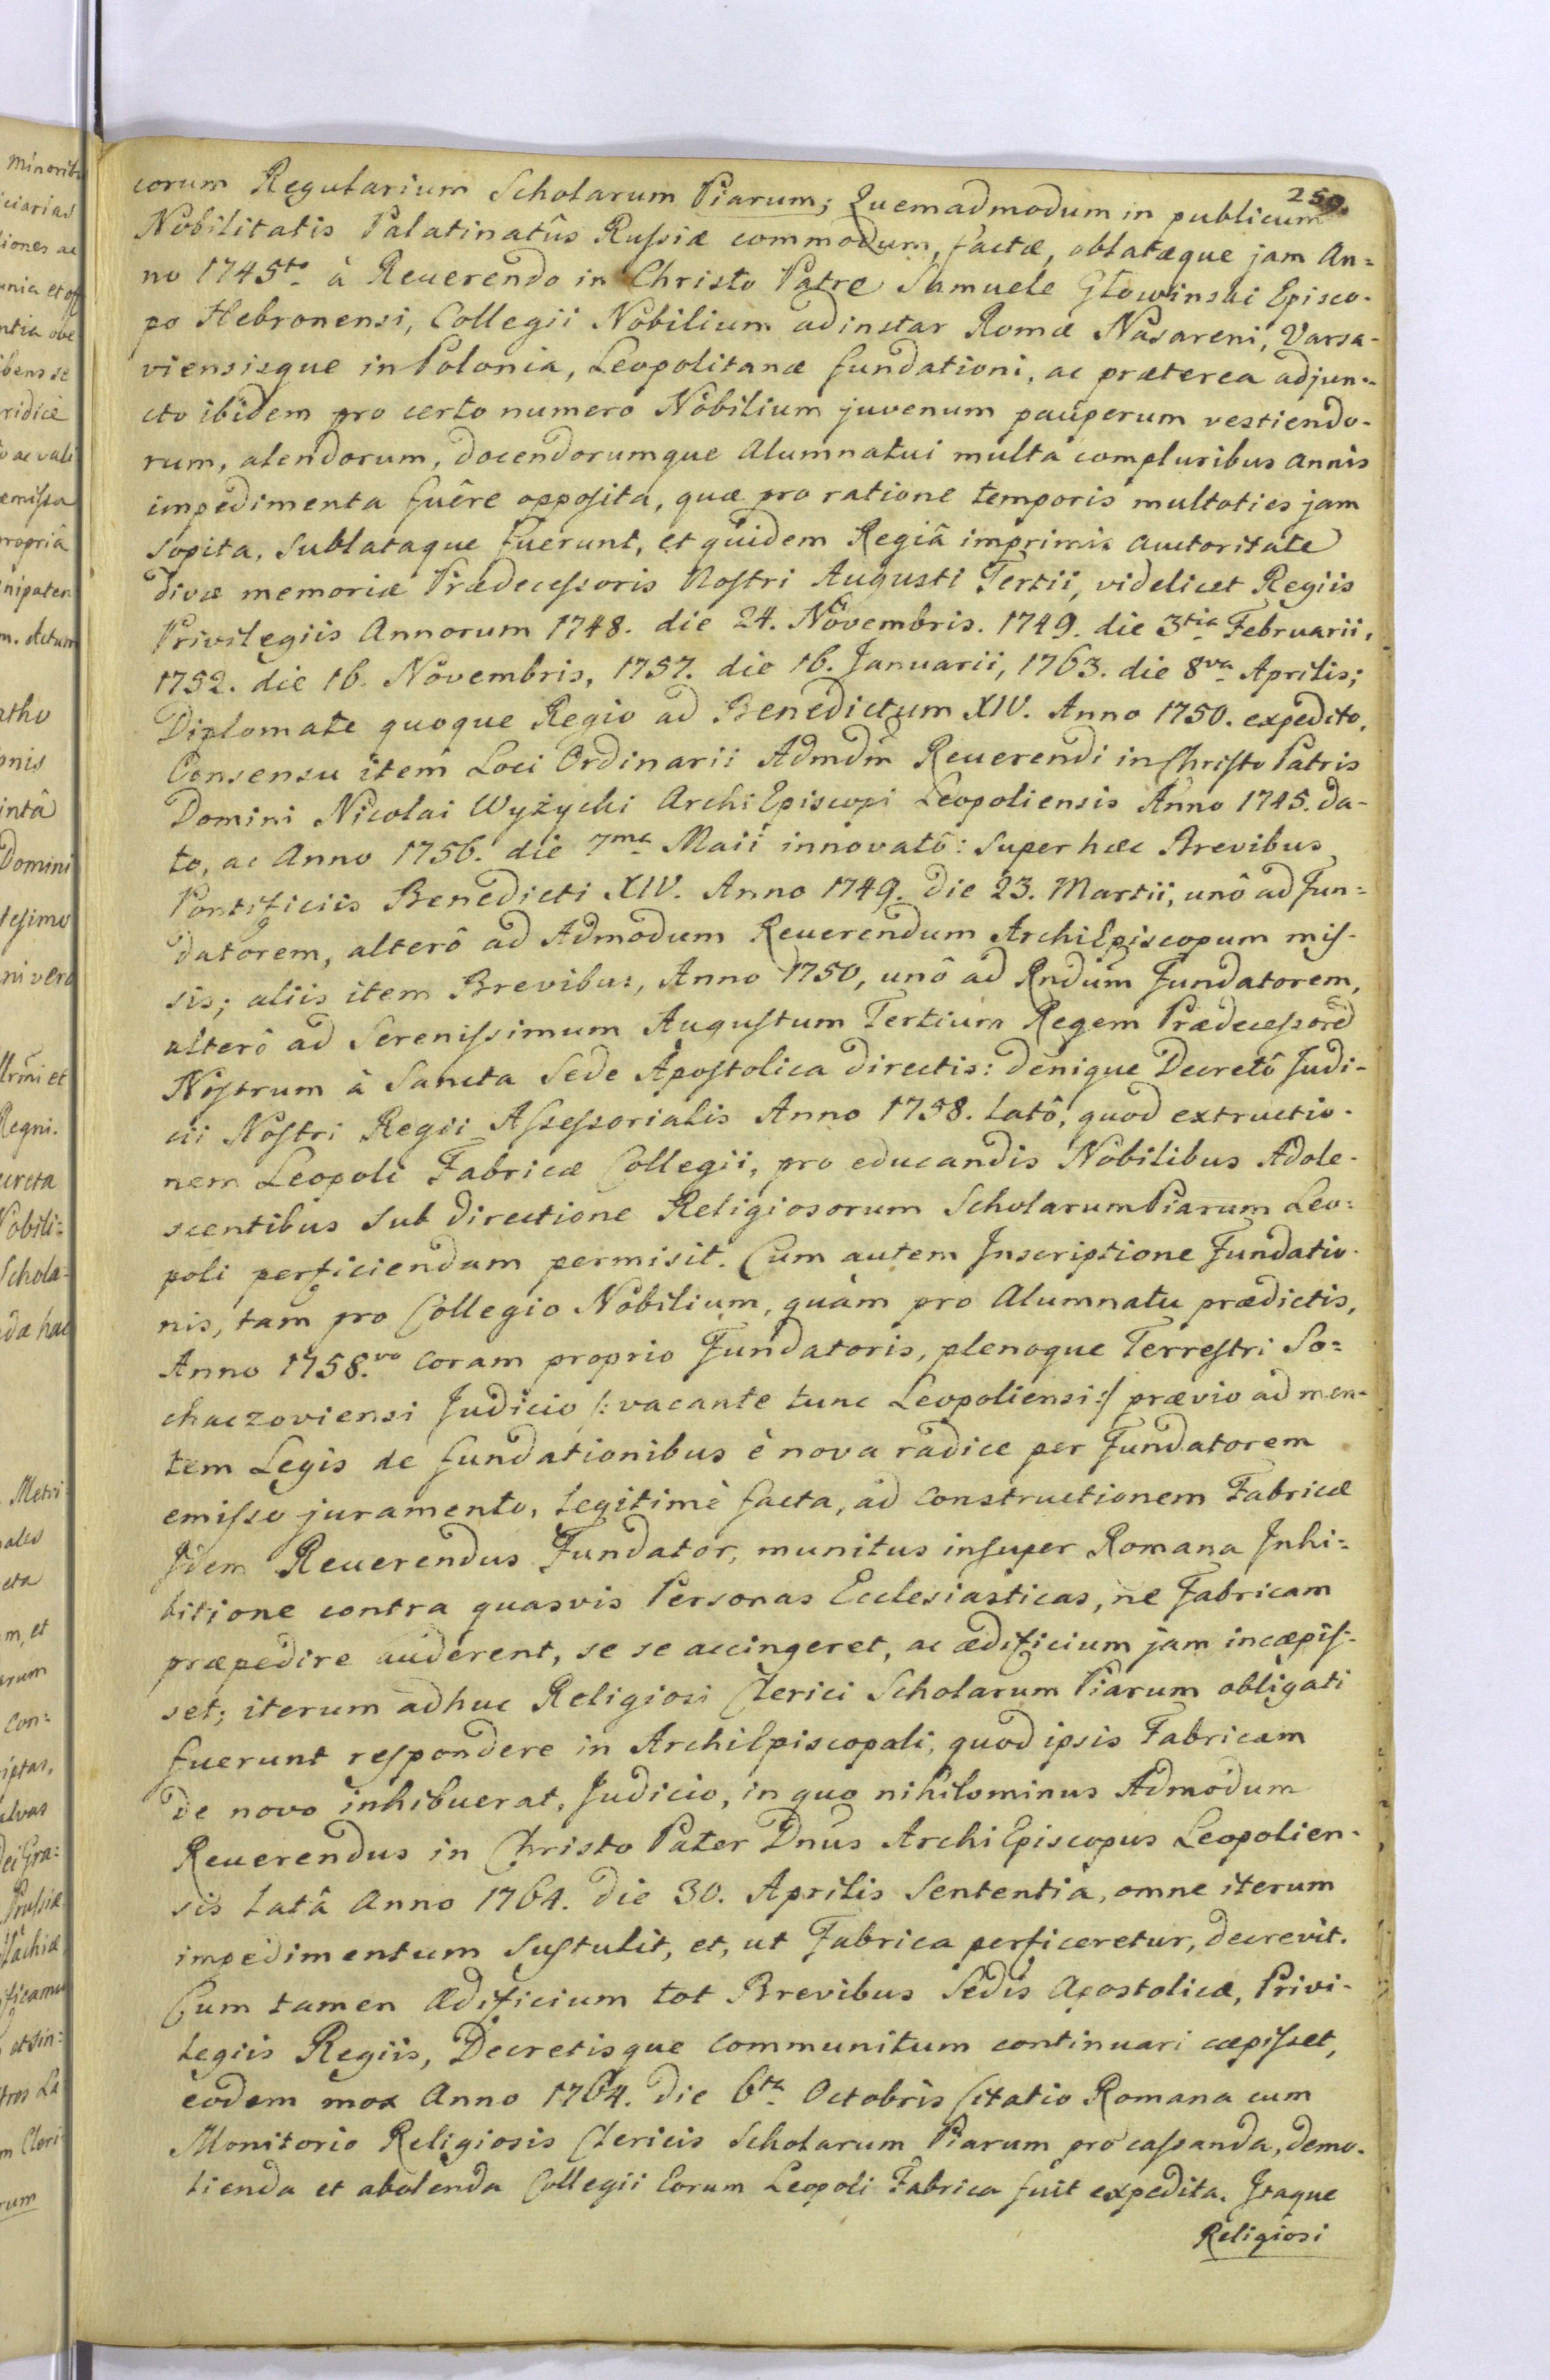 250.
corum Regularium Scholarum Piarum; Quemadmodum in publicum
Nobilitatis Palatinatûs Rußiæ commodum, factæ, oblatæque jam An=
no 1745to à Reuerendo in Christo Patre Samuele Głowinski Episco-
po Hebronensi, Collegii Nobilium adinstar Romæ Nasareni, Varsa-
viensisque in Polonia, Leopolitanæ fundationi, ac præterea adjun=
cto ibidem pro certo numero Nobilium juvenum pauperum vestiendo-
rum, alendorum, docendorumque Alumnatui multa compluribus annis
impedimenta fuêre opposita, quæ pro ratione temporis multoties jam
sopita, sublataque fuerunt, et quidem Regiâ imprimis auctoritate
divæ memoriæ Prædecessoris Nostri Augusti Tertii, videlicet Regiis
Privilegiis Annorum 1748. die 24. Novembris. 1749. die 3tia Februarii,
1752. die 16. Novembris, 1757. die 16. Januarii, 1763. die 8va Aprilis;
Diplomate quoque Regio ad Benedictum XIV. Anno 1750. expedito,
Consensu item Loci Ordinarii Admdm Reuerendi in Christo Patris
Domini Nicolai Wyżycki ArchiEpiscopi Leopoliensis Anno 1745. da-
to, ac Anno 1756. die 7ma Maii innovatô: super hæc Brevibus
Pontificiis Benedicti XIV. Anno 1749. die 23. Martii, unô ad Fun=
datorem, alterô ad Admodum Reuerendum ArchiEpiscopum mis-
sis; aliis item Brevibus, Anno 1750, unô ad Rndum Fundatorem,
alterô ad Serenissimum Augustum Tertium Regem Prædecessorem
Nostrum à Sancta Sede Apostolica directis: denique Decretô Judi-
cii Nostri Regii Assessorialis Anno 1758. latô, quod extructio-
nem Leopoli Fabricæ Collegii, pro educandis Nobilibus Adole-
scentibus sub directione Religiosorum Scholarum Piarum Leo=
poli perficiendam permisit. Cum autem Inscriptione Fundatio-
nis, tam pro Collegio Nobilium, quàm pro Alumnatu prædictis,
Anno 1758.vo coram proprio Fundatoris, plenoque Terrestri So=
chaczoviensi Judicio /: vacante tunc Leopoliensi :/ prævio ad men-
tem Legis de fundationibus è nova radice per Fundatorem
emisso juramento, legitimè facta, ad constructionem Fabricæ
Idem Reuerendus Fundator, munitus insuper Romana Inhi=
bitione contra quasvis Personas Ecclesiasticas, ne Fabricam
præpedire auderent, se se accingeret, ac ædificium jam incæpis-
set; iterum adhuc Religiosi Clerici Scholarum Piarum obligati
fuerunt respondere in ArchiEpiscopali, quod ipsis Fabricam
de novo inhibuerat, Judicio, in quo nihilominus Admodum
Reuerendus in Christo Pater Dnus ArchiEpiscopus Leopolien-
sis latâ Anno 1764. die 30. Aprilis Sententiâ, omne iterum
impedimentum sustulit, et, ut Fabrica perficeretur, decrevit.
Cum tamen Ædificium tot Brevibus Sedis Apostolicæ, Privi-
legiis Regiis, Decretisque communitum continuari cæpisset,
eodem mox Anno 1764. die 6ta Octobris Citatio Romana cum
Monitorio Religiosis Clericis Scholarum Piarum pro cassanda, demo-
lienda et abolenda Collegii Eorum Leopoli Fabrica fuit expedita. Itaque
Religiosi